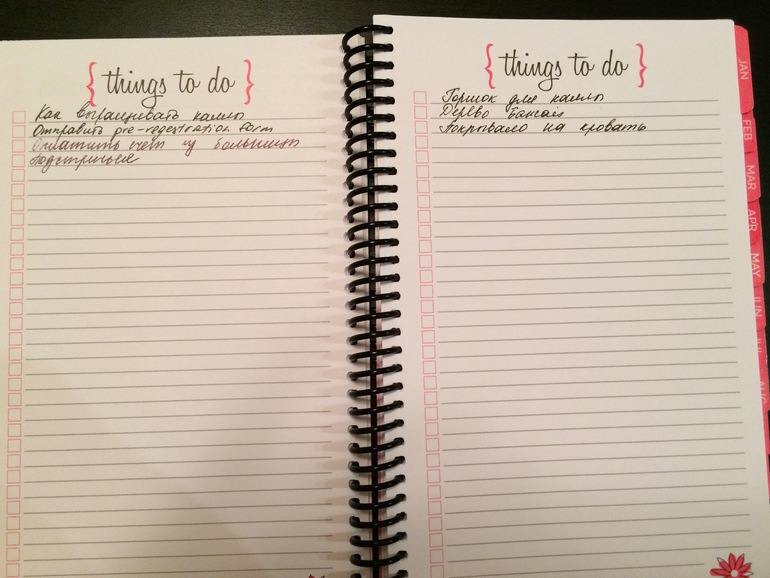 { things to do }
Как выращивать каллы
Отправить pre-regestration form
Оплатить счет из больницы
Подстричься
{ things to do }
Горшок для каллы
Дерево Бансай
Покрывало на кровать
JAN
FEB
MAR
APR
MAY
JUN
JUL
AUG